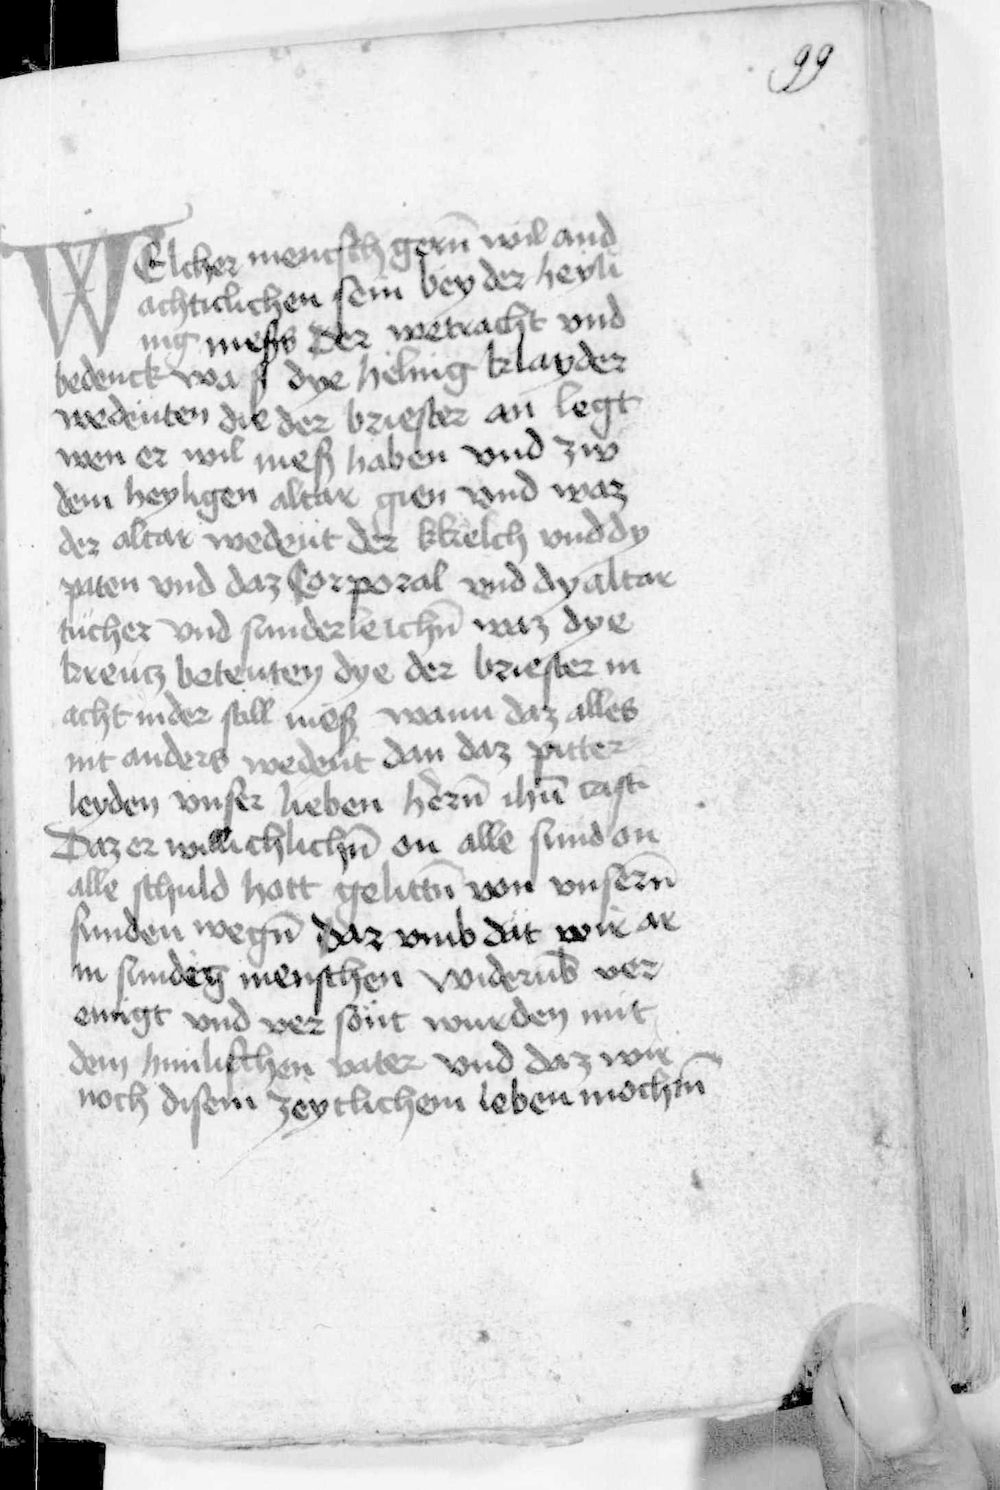 99
WElcher mensch gerñ wil and
achticlichen sein bey der heyli
nig meß der wetracht vnd
bedenck waß dye heling klayder
wedeuten die der briester an legt
wen er wil meß haben vnd zw
dem heyligen altar gien vnd waz
der altar wedeüt der kkelch vnd dy
paten vnd daz Corporal vnd dy altar
tücher vnd sunderleichñ waz dye
kreucz beteuten dye der briester m
acht in der still meß wann daz alles
nit anders wedeut dan daz pitter
leyden vnser lieben herñ ihũ cristi
Daz er willichlichñ on alle sund on
alle schuld hott gelittñ von vnserñ
sunden wegñ daz vmb dät wir ar
m sundeg menschen widerũb ver
einigt vnd ver sönt wurden mit
dem himlischen vater vnd daz wir
noch disem zeytlichem leben mochtñ